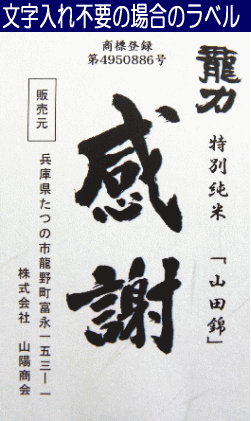 文字入れ不要の場合のラベル
商標登録
第4950886号
龍力
特別純米 「山田錦」
感謝
販売元
兵庫県たつの市龍野町富永一五三ー一
株式会社 山陽商会